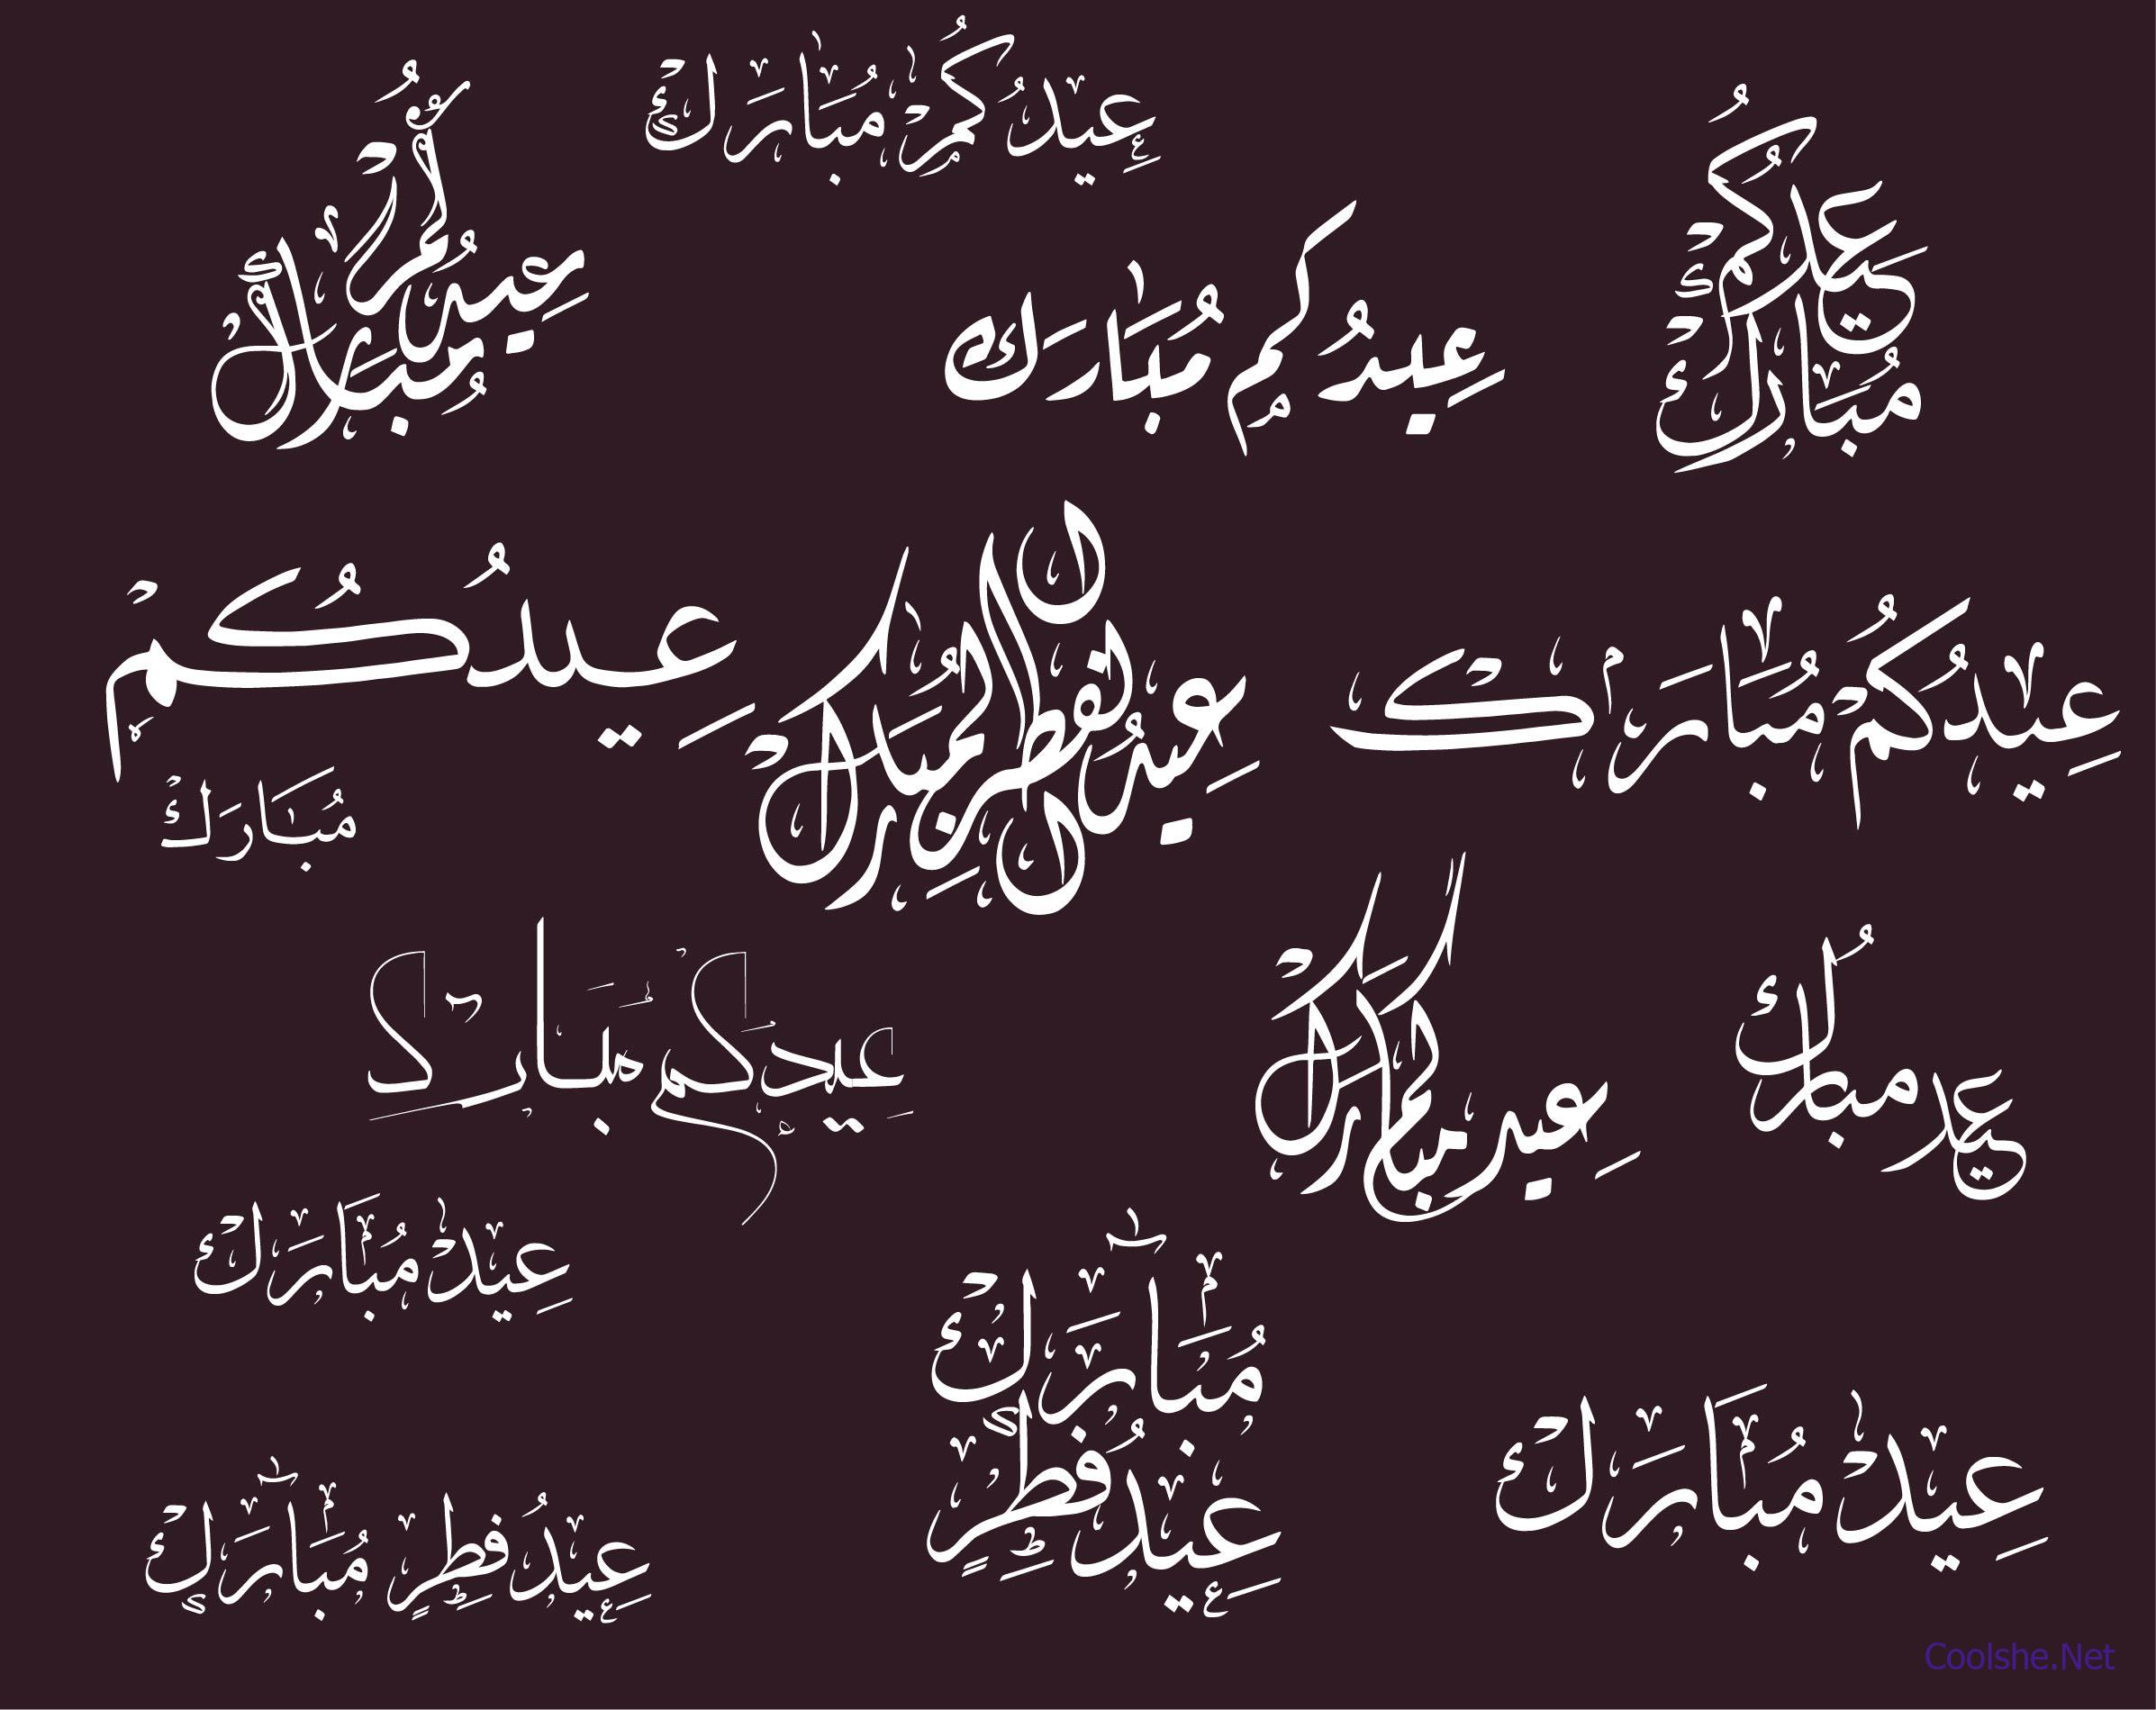 عيدكم مبارك
عيدكم مبارك
عيدكم مبارك
عيدكم مبارك
عيدكم
مبارك
عيد فطر مبارك
عيدكم مبارك
عيدكم مبارك
عيد مبارك
عيد مبارك
عيد مبارك
مبارك
عيد فطر
عيد فطر مبارك
عيد مبارك
Coolshe.Net